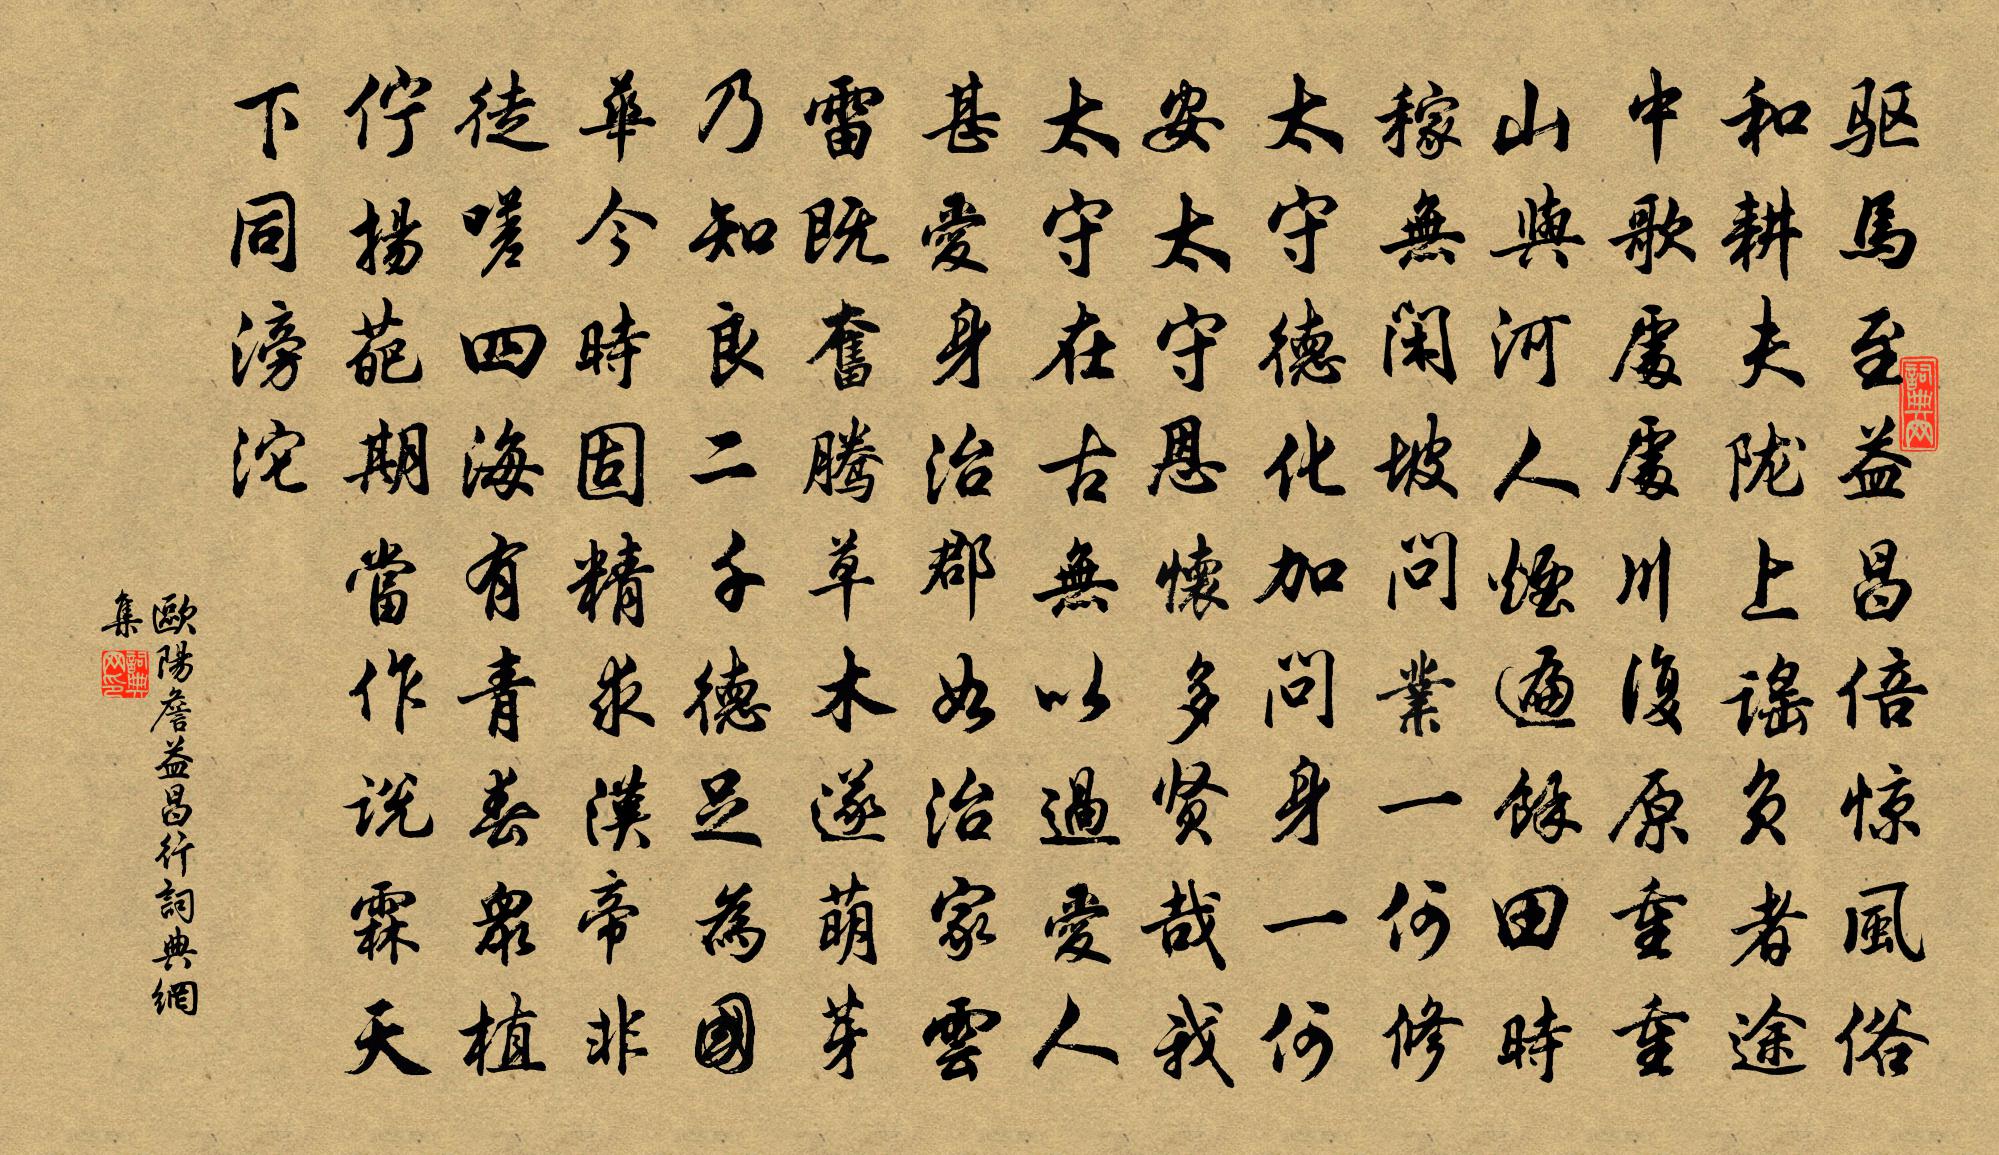 驱馬至益昌倍惊風俗
和耕夫陇上謡负者途
中歌處處川復原重重
山與河人煙遍餘田時
稼無閑坡問業一何修
太守德化加問身一何
安太守恩懷多贤哉我
太守在古無以過愛人
甚愛身治郡如治家雲
雷既奮騰草木遂萌芽
乃知良二千德足為國
華今時固精求漢帝非
徒嗟四海有青春眾植
佇揚葩期當作说霖天
下同滂沱
歐陽詹益昌行詞典網
集
詞典网
詞典网印